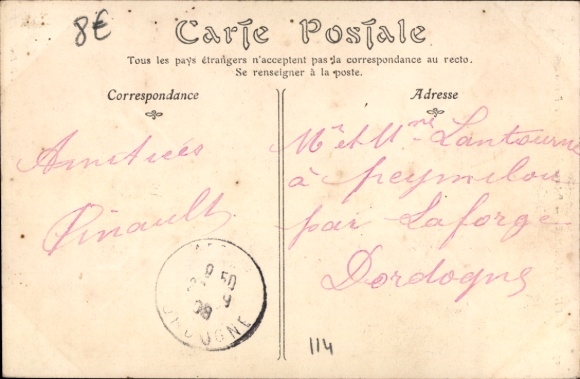 8€
Carte Postale
Tous les pays étrangers n'acceptent pas la correspondance au recto.
Se renseigner à la poste.
Correspondance
Amitiés
Pinault
Adresse
Mr et Mme Lantourne
à peymilou
par Laforge
Dordogne
50
9
DORDOGNE
114